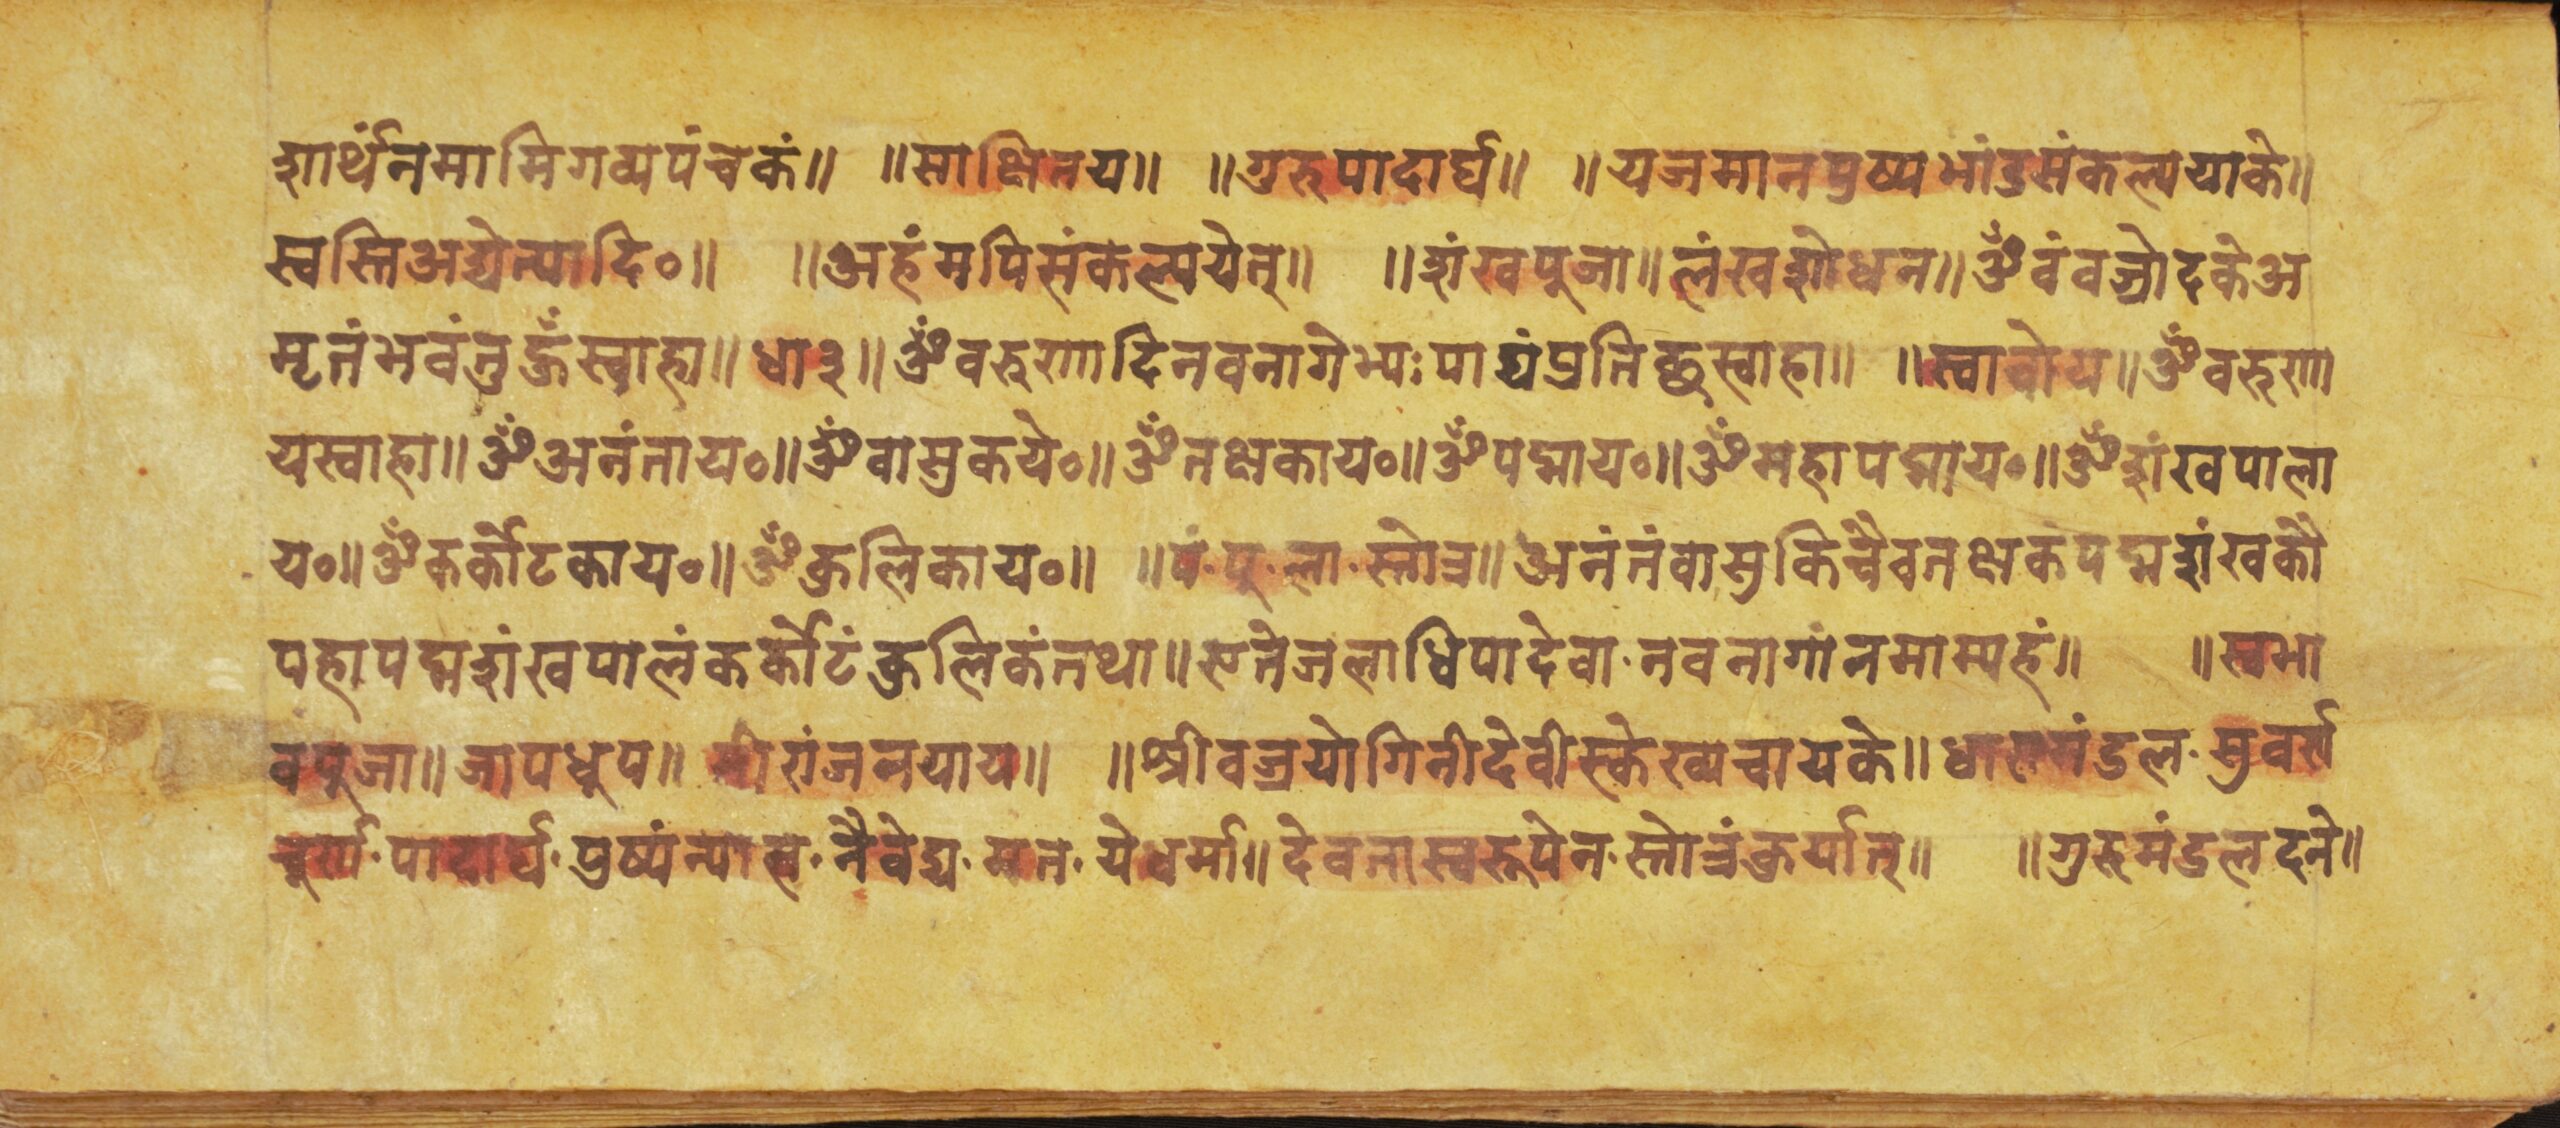 शार्थंनमामिगव्यपंचकं॥ ॥साक्षितय॥ ॥गुरुपादार्घ॥ ॥यजमानपुष्पभांडसंकल्पयाके॥
स्वस्तिअद्येत्यादि०॥ ॥अहंमपिसंकल्पयेत्॥ ॥शंखपूजा॥लंखशोधन॥ॐवंवज्रोदकेअ
मृतंभवंतुह्रूँस्वाहा॥धा३॥ॐवरुणादिनवनागेभ्यःपाद्यंप्रतिच्छस्वाहा॥ ॥स्वावोय॥ॐवरुणा
यस्वाहा॥ॐअनंताय०॥ॐवासुकये०॥ॐतक्षकाय०॥ॐपद्माय०॥ॐमहापद्माय०॥ॐशंखपाला
य०॥ॐकर्कोटकाय०॥ॐकुलिकाय०॥ ॥पं·पु·ला·स्तोत्र॥अनंतंवासुकिचैवतक्षकंपद्मशंखकौ
पहापद्मशंखपालंकर्कोटंकुलिकंतथा॥एतेजलाधिपादेवा·नवनागांनमाम्यहं॥ ॥स्वभा
वपूजा॥जापधूप॥ नीरांजनयाय॥ ॥श्रीवज्रयोगिनीदेवीस्केख्यचायके॥धालमंडल·सुवर्ण
चूर्ण·पादार्घ·पुष्पंन्यास·नैवेद्य·मत·येधर्मा॥देवतास्वरूपेन·स्तोत्रंकुर्यात्॥ ॥गुरुमंडलदने॥